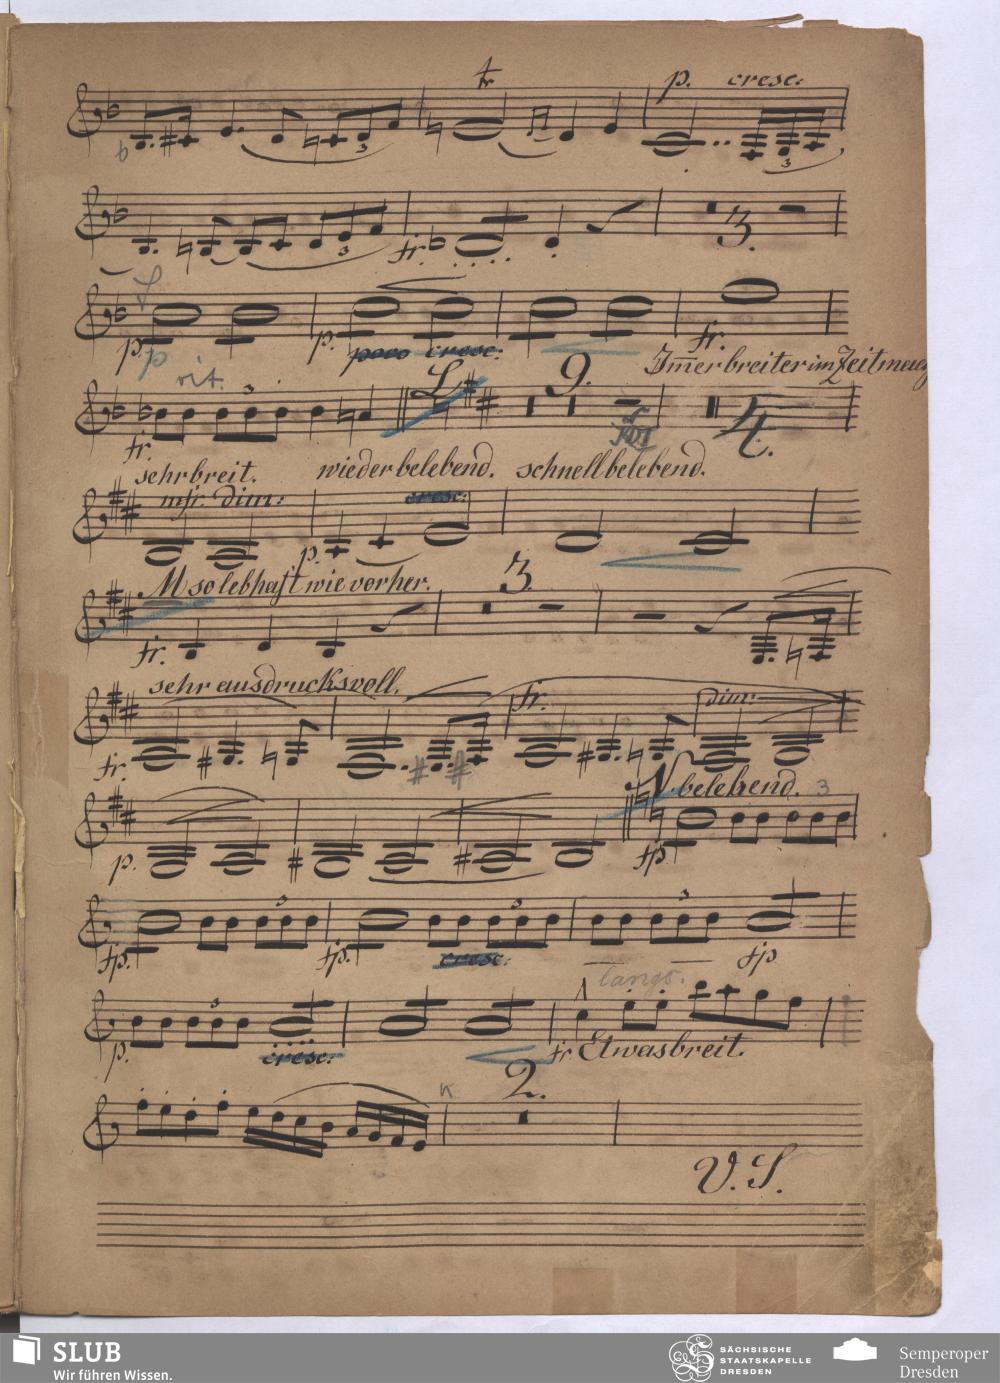 tr p. cresc:
3 3
3 fr. 3.
p. p. poco cresc: fr.
p rit. Im̅er breiter im Zeitmaa
3 L 9. 4.
fr.
sehr breit. wieder belebend. schnell belebend.
mfr. dim: cresc:
p.
M so lebhaft wie vorher. 3.
fr.
sehr ausdrucksvoll. fr. dim:
fr.
N belebend. 3
p. fp
3 3 3
fp. fp. cresc: fp
langs.
3
p. cresc: fr Etwas breit.
2.
V. S.
SLUB
Wir führen Wissen.
SÄCHSISCHE
STAATSKAPELLE
DRESDEN
Semperoper
Dresden